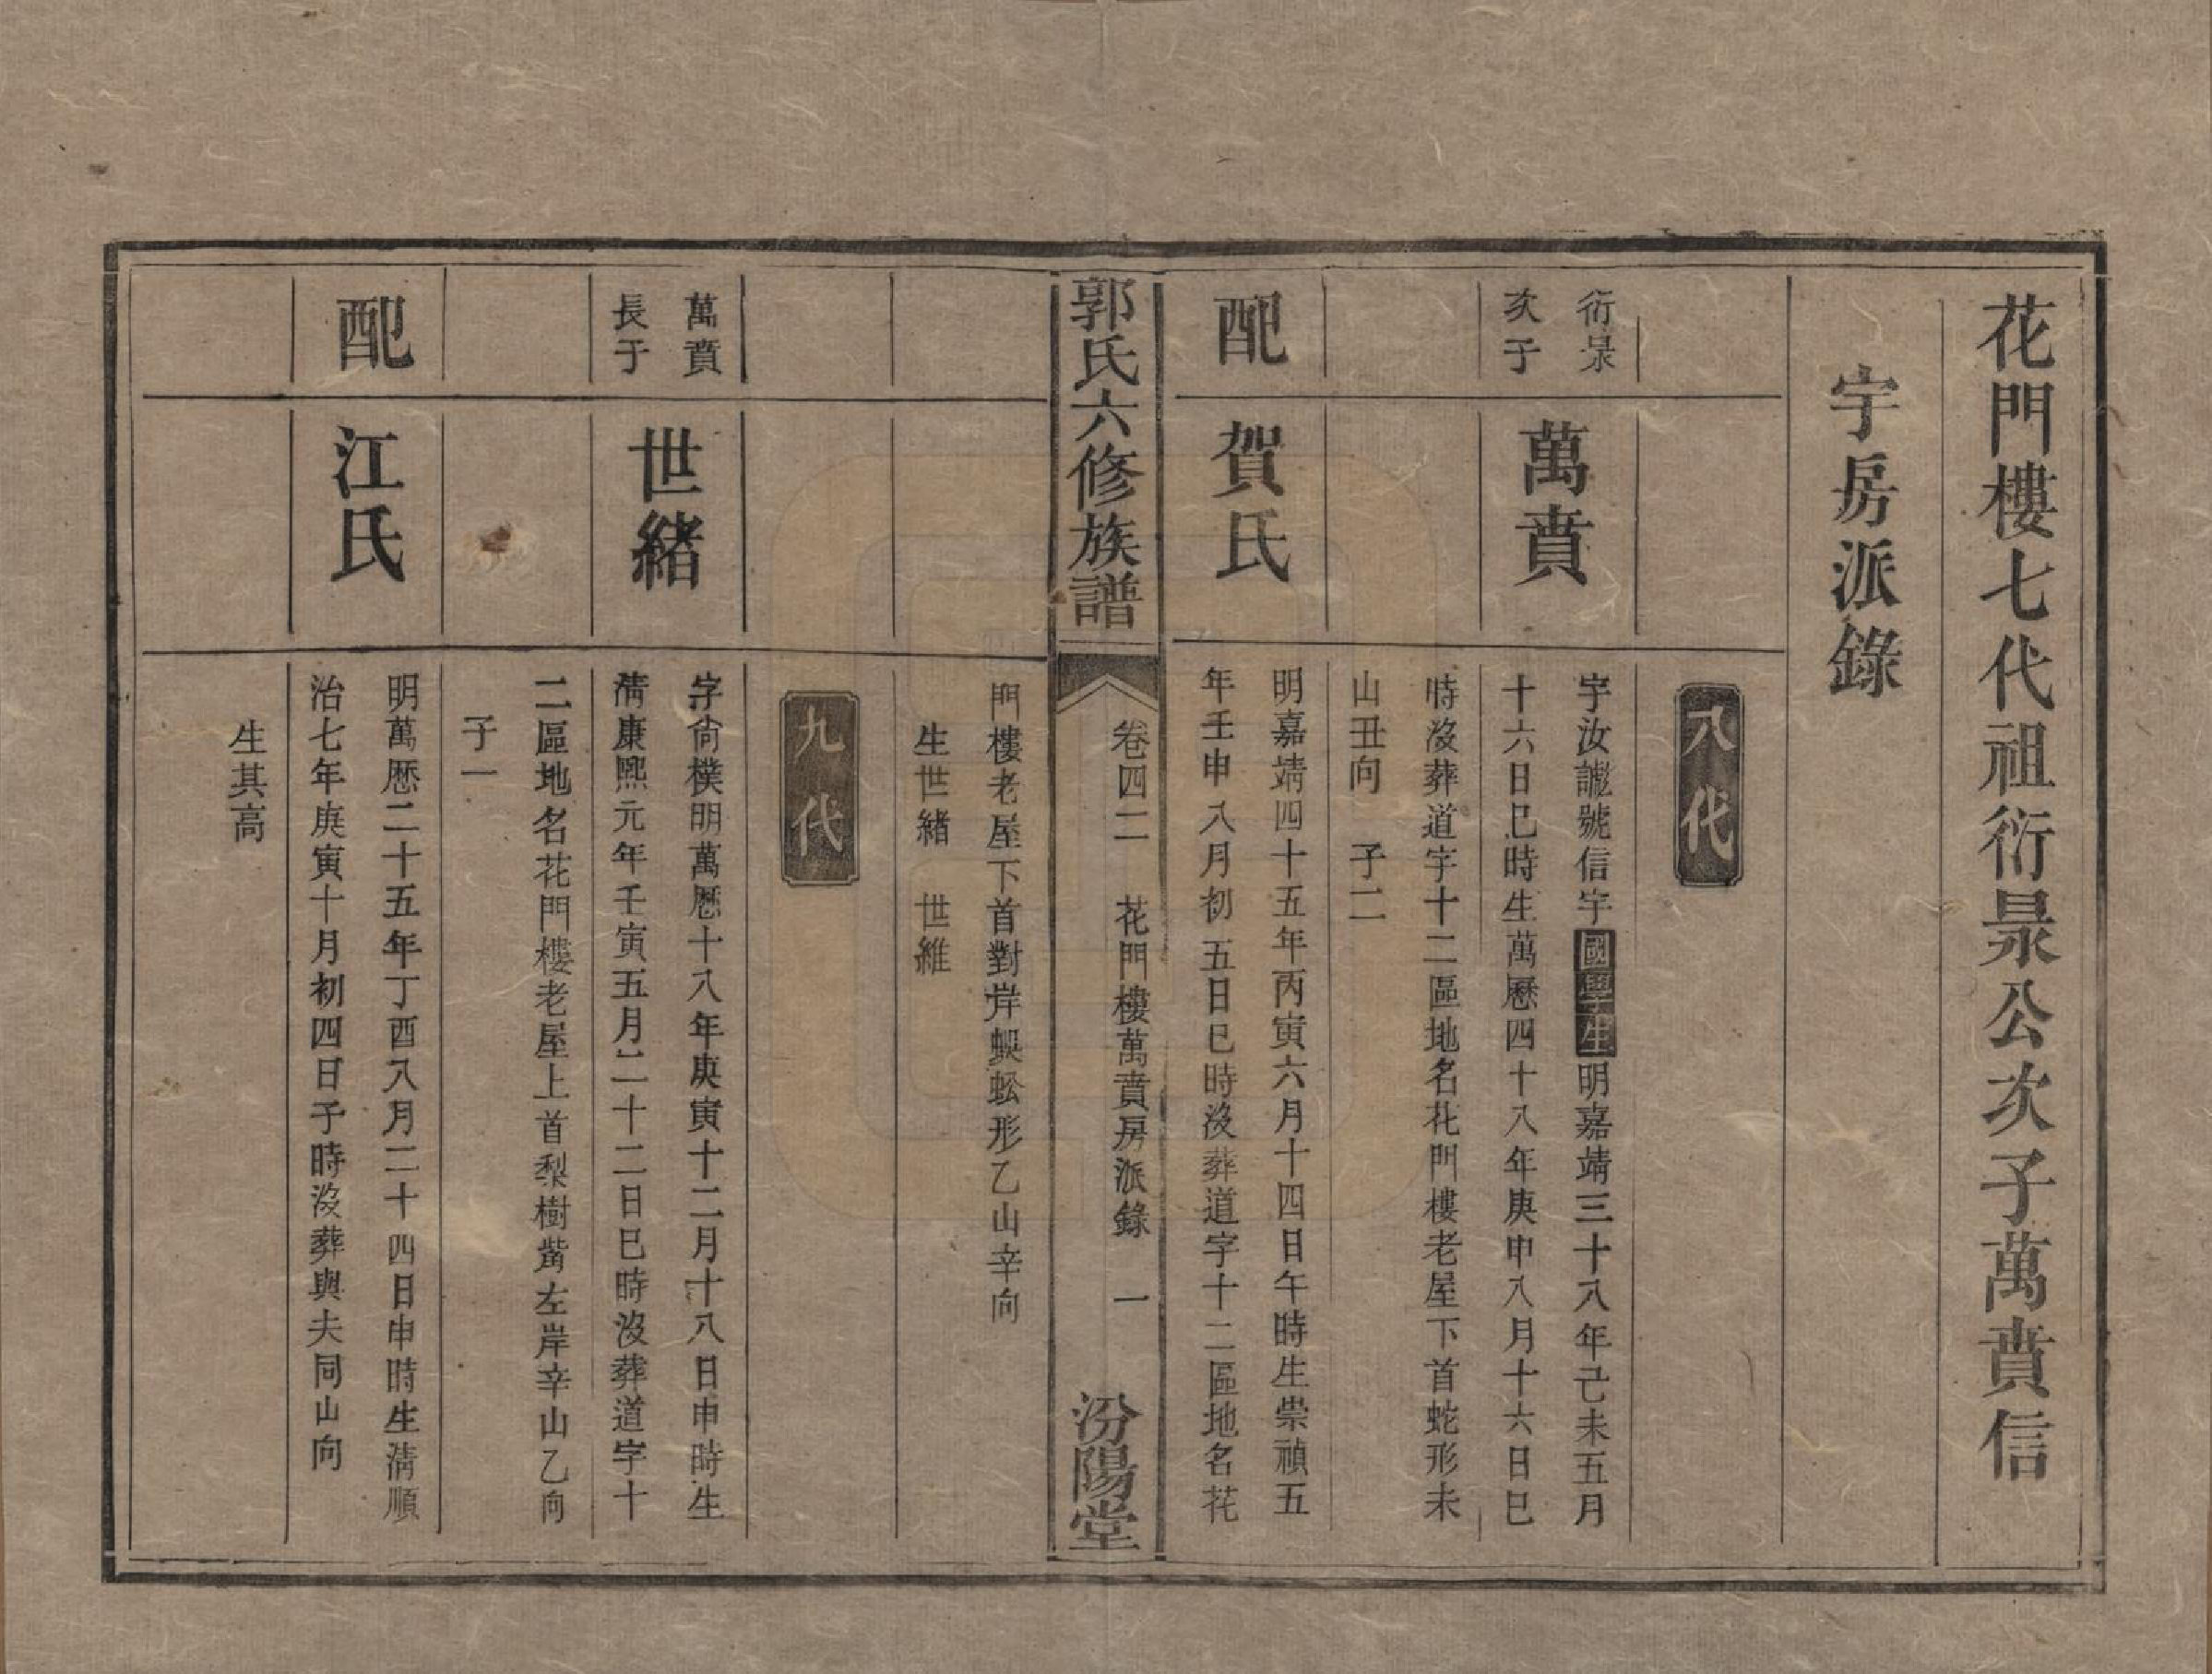 花門樓七代祖衍景公次子萬賁信
宇房派錄
八代
衍景
次子
萬賁
字汝誠號信宇國學生明嘉靖三十八年己未五月
十六日巳時生萬歷四十八年庚申八月十六日巳
時沒葬道字十二區地名花門樓老屋下首蛇形未
山丑向 子二
配
賀氏
明嘉靖四十五年丙寅六月十四日午時生崇禎五
年壬申八月初五日巳時沒葬道字十二區地名花
郭氏六修族譜
卷四二 花門樓萬賁房派錄 一
汾陽堂
門樓老屋下首對岸蜈蚣形乙山辛向
生世緒 世維
九代
萬賁
長子
世緒
字尙樸明萬歷十八年庚寅十二月十八日申時生
清康熙元年壬寅五月二十二日巳時沒葬道字十
二區地名花門樓老屋上首梨樹觜左岸辛山乙向
子一
配
江氏
明萬歷二十五年丁酉八月二十四日申時生清順
治七年庚寅十月初四日子時沒葬與夫同山向
生其高